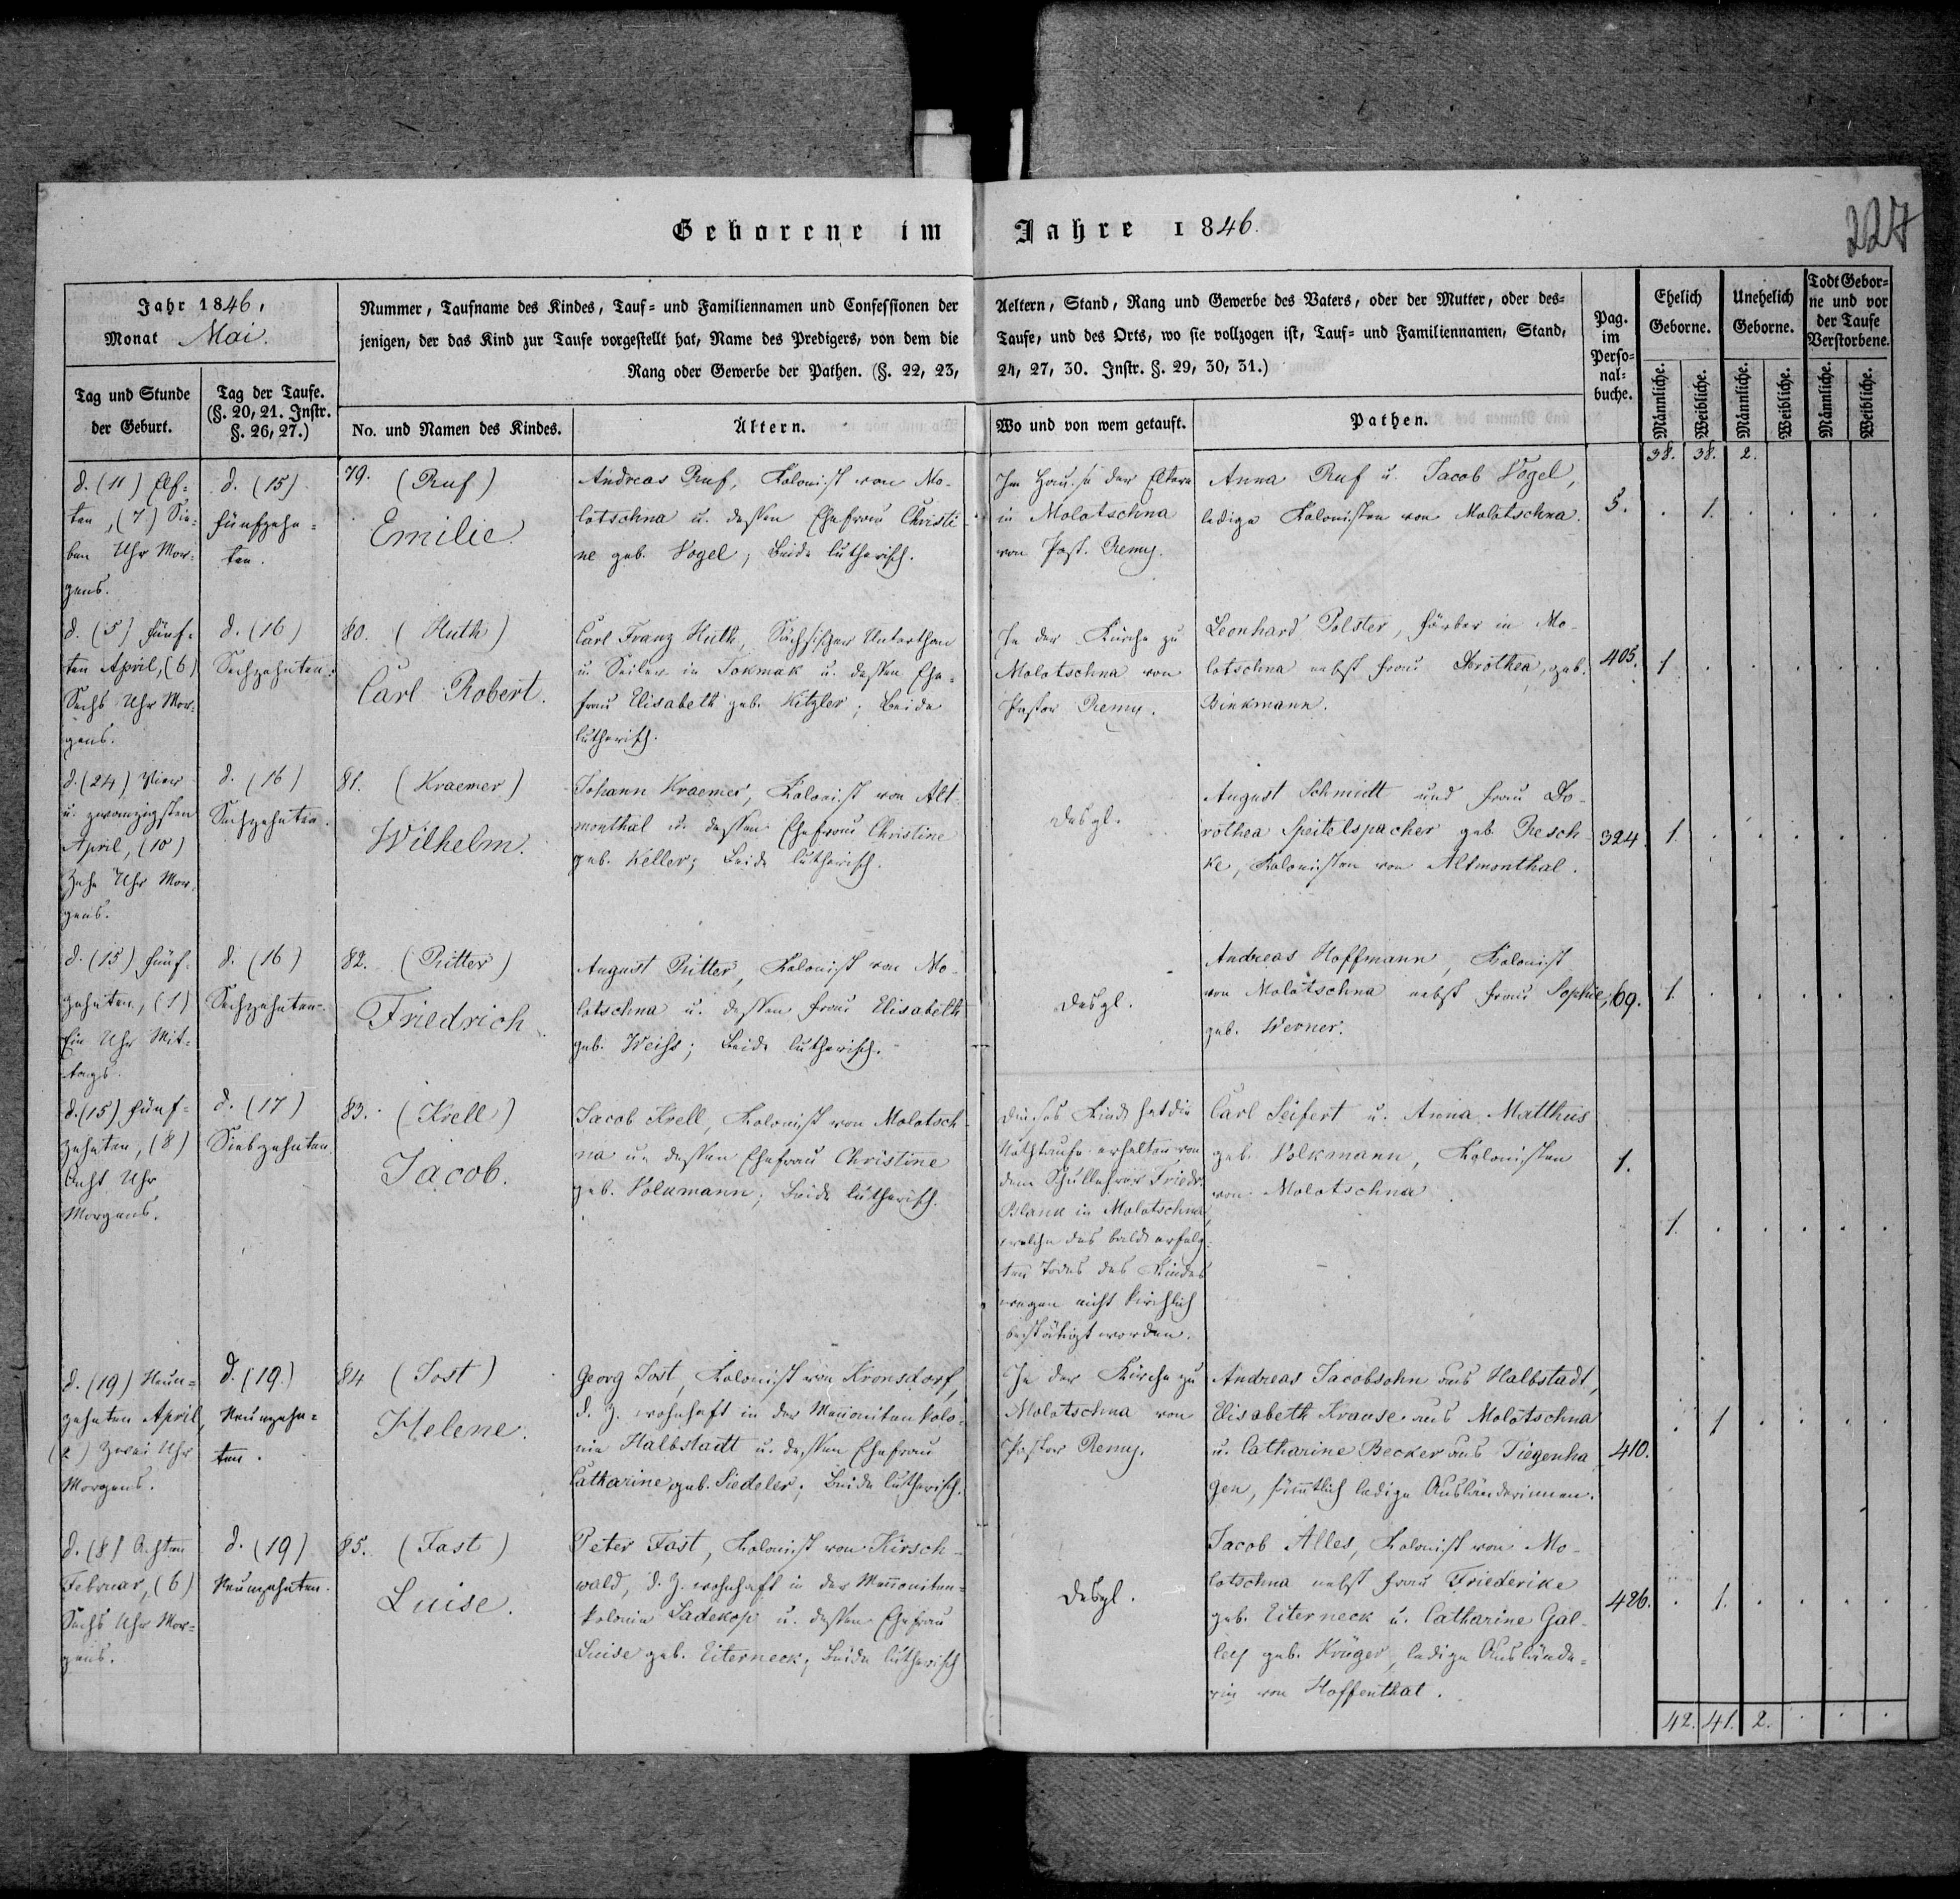 Geborene im Jahre 1846.
227
Jahr 1846,
Monat Mai.
Nummer, Taufname des Kindes, Tauf= und Familiennamen und Confessionen der Aeltern, Stand, Rang und Gewerbe des Vaters, oder der Mutter, oder des=
jenigen, der das Kind zur Taufe vorgestellt hat, Name des Predigers, von dem die Taufe, und des Orts, wo sie vollzogen ist, Tauf= und Familiennamen, Stand,
Rang oder Gewerbe der Pathen. (§. 22, 23, 24, 27, 30. Instr. §. 29, 30, 31.)
Tag und Stunde
der Geburt.
Tag der Taufe.
(§. 20, 21. Instr.
§. 26, 27.)
No. und Namen des Kindes.
Ältern.
Wo und von wem getauft.
Pathen.
Pag.
im
Perso=
nal=
buche.
Ehelich
Geborne.
Unehelich
Geborne.
Todt Gebor=
ne und vor
der Taufe
Verstorbene.
Männliche.
Weibliche.
Männliche.
Weibliche.
Männliche.
Weibliche.
38. 38. 2.
d. (11) Elf=
ten, (7) Sie=
ben Uhr Mor=
gens.
d. (15)
fünfzehn=
ten.
79. (Ruf)
Emilie.
Andreas Ruf, Kolonist von Mo-
lotschna u. dessen Ehefrau Christi-
ne geb. Vogel; Beide lutherisch.
Im Hause der Eltern
in Molotschna
von Past. Remy.
Anna Ruf u. Jacob Vogel,
ledige Kolonisten von Molotschna.
5. . 1. . . . .
d. (5) fünf=
ten April, (6)
Sechs Uhr Mor=
gens.
d. (16)
Sechzehnten.
80. (Huth)
Carl Robert.
Carl Franz Huth, Sächsischer Unterthan
u. Seiler in Tokmak u. dessen Ehe=
frau Elisabeth geb. Kitzler; Beide
lutherisch.
In der Kirche zu
Molotschna von
Pastor Remy.
Leonhard Polster, Färber in Mo-
lotschna nebst Frau Dorothea, geb.
Binkmann.
405. 1 . . . . .
d. (24) Vier
u. zwanzigsten
April, (10)
Zehn Uhr Mor=
gens.
d. (16)
Sechzehnten.
81. (Kraemer)
Wilhelm.
Johann Kraemer, Kolonist von Alt-
monthal u. dessen Ehefrau Christine
geb. Keller; Beide lutherisch.
desgl.
August Schmidt und Frau Do-
rothea Speitelspacher geb. Resch-
ke, Kolonisten von Altmonthal.
324 1. . . . . .
d. (15) fünf=
zehnten, (1)
Ein Uhr Mit=
tags.
d. (16)
Sechzehnten.
82. (Ritter)
Friedrich.
August Ritter, Kolonist von Mo-
lotschna u. dessen Frau Elisabeth
geb. Weiss; Beide lutherisch.
desgl.
Andreas Hoffmann, Kolonist
von Molotschna nebst Frau Sophie,
geb. Werner.
69. 1. . . . . .
d. (15) fünf=
zehnten, (8)
Acht Uhr
Morgens.
d. (17)
Siebzehnten
83. (Krell)
Jacob.
Jacob Krell, Kolonist von Molotsch-
na u. dessen Ehefrau Christine
geb. Volkmann; Beide lutherisch.
Dieses Kind hat die
Nothtaufe erhalten von
dem Schullehrer Friedr.
Blank in Molotschna,
welche des bald erfolg=
ten Todes des Kindes
wegen nicht kirchlich
bestätigt worden.
Carl Seifert u. Anna Matthus
geb. Volkmann, Kolonisten
von Molotschna.
1.
1. . . . . .
d. (19) Neun=
zehnten April,
(2) Zwei Uhr
Morgens.
d. (19.)
Neunzehn=
ten.
84 (Jost)
Helene.
Georg Jost, Kolonist von Kronsdorf,
d. Z. wohnhaft in der Menonitenkolo-
nie Halbstadt u. dessen Ehefrau
Catharine geb. Siedeler; Beide lutherisch.
In der Kirche zu
Molotschna von
Pastor Remy.
Andreas Jacobsohn aus Halbstadt,
Elisabeth Krause aus Molotschna
u. Catharine Becker aus Tiegenha
gen, sämtlich ledige Ausländerinnen.
410. . 1 . . . .
d. (8) Achten
Februar, (6)
Sechs Uhr Mor=
gens.
d. (19)
Neunzehnten.
85. (Fast)
Luise.
Peter Fast, Kolonist von Kirsch-
wald, d. Z. wohnhaft in der Menoniten=
kolonie Ladekop u. dessen Ehefrau
Luise geb. Eiterneck; Beide lutherisch
desgl.
Jacob Alles, Kolonist von Mo-
lotschna nebst Frau Friederike
geb. Eiterneck u. Catharine Gal-
ley geb. Krüger, ledige Auslände=
rin von Hoffenthal.
426. . 1. . . . .
42. 41. 2. . . .